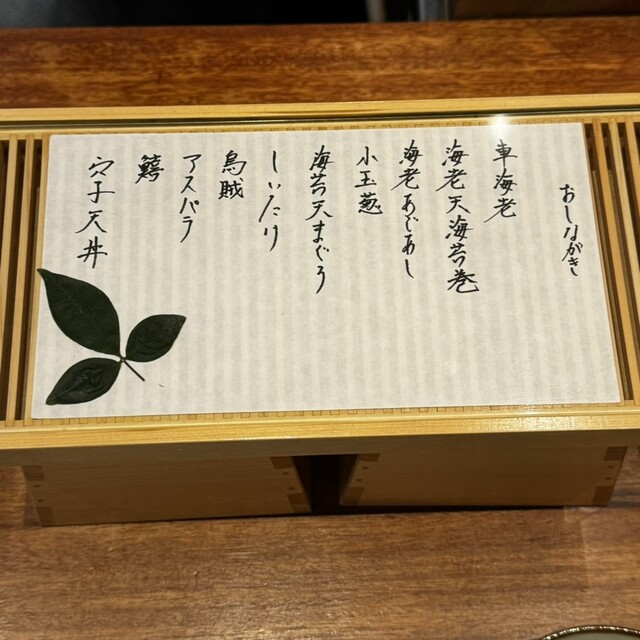 おしながき
車海老
海老天海苔巻
海老あじあし
小玉葱
海苔天まぐろ
しいたけ
烏賊
アスパラ
鱚
穴子天丼